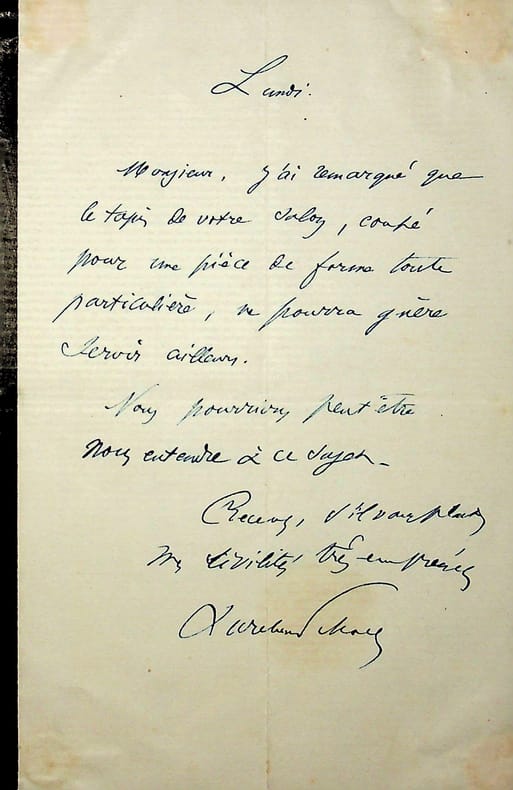 Lundi.
Monsieur, j'ai remarqué que
le tapis de votre salon, coupé
pour une pièce de forme toute
particulière, ne pourra guère
servir ailleurs.
Nous pourrions peut être
nous entendre à ce sujet _
Recevez, s'il vous plait
mes civilités très empressées